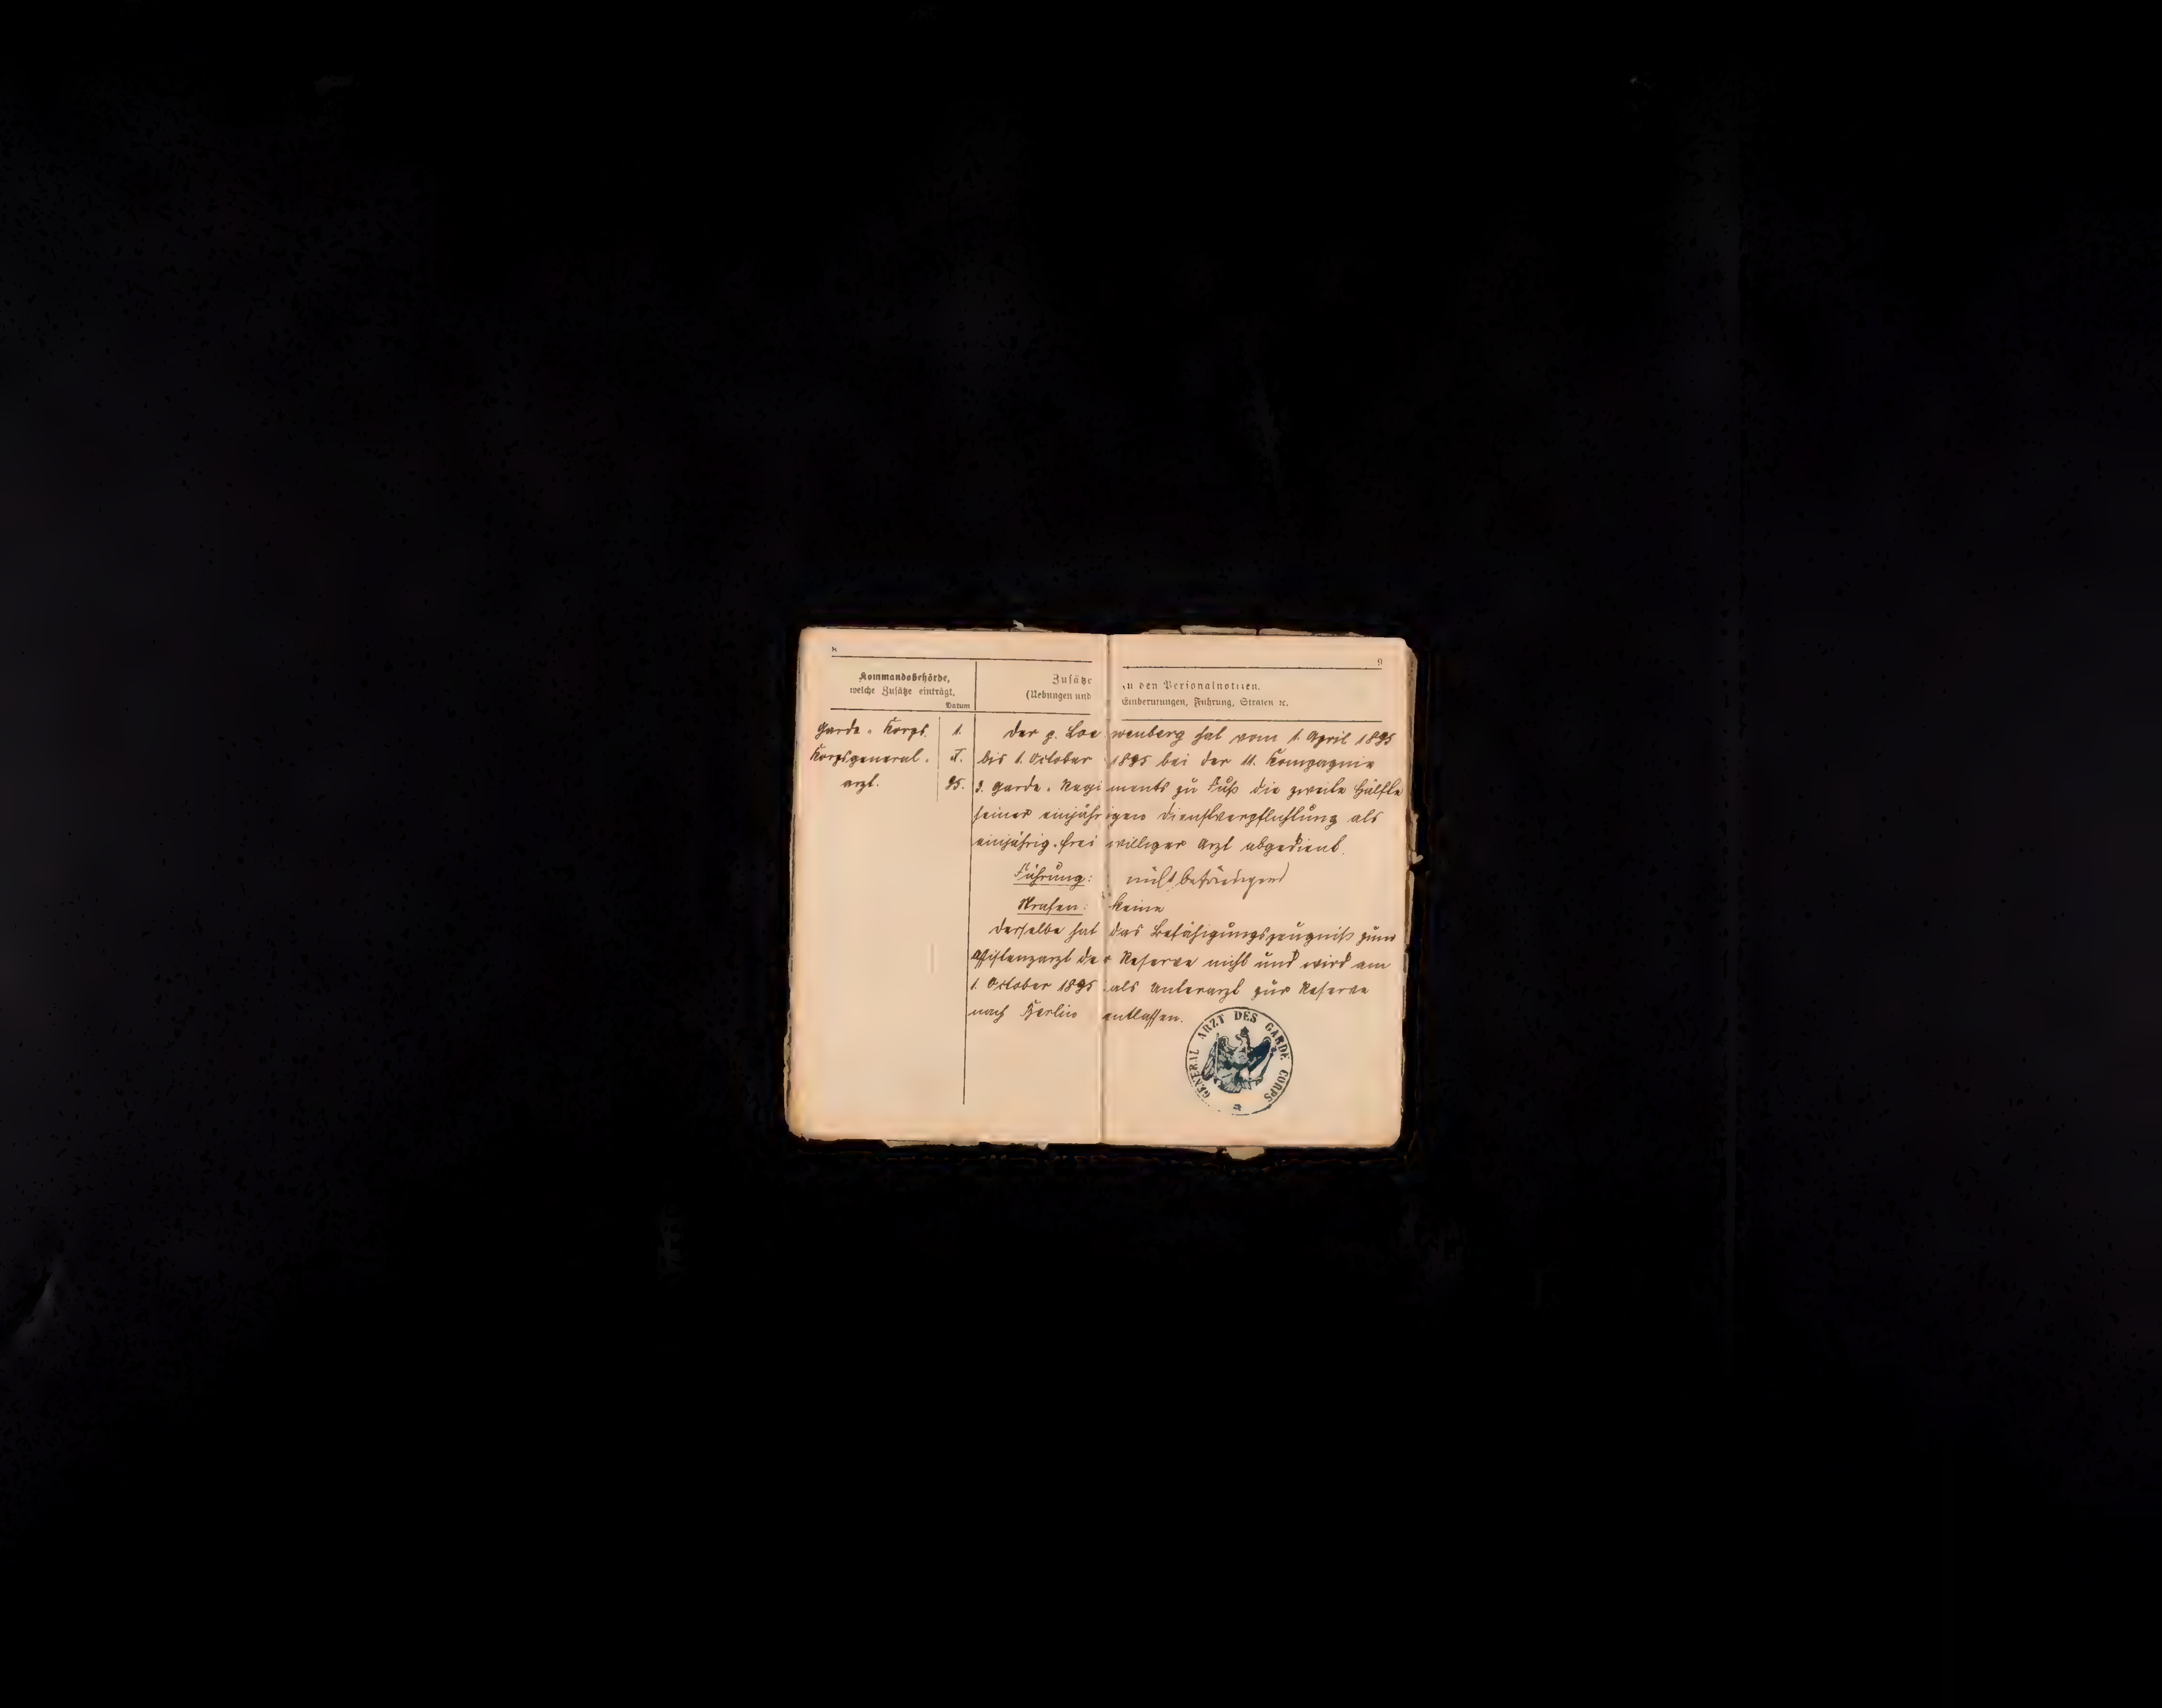 8
Kommandobehörde,
welche Zusätze einträgt.
Datum
Zusätze zu den Personalnotizen.
(Uebungen und Einberufungen, Führung, Strafen ꝛc.
9
Garde-Korps.
Korpsgeneral-
arzt.
1.
X.
95.
Der p. Loewenberg hat vom 1. April 1895
bis 1. October 1895 bei der 11. Kompagnie
3. Garde-Regiments zu Fuß die zweite Hälfte
seiner einjährigen Dienstverpflichtung als
einjährig-freiwilliger Arzt abgedient.
Führung: nicht befriedigend
Strafen: Keine
Derselbe hat das Befähigungszeugniß zum
Assistenzarzt der Reserve nicht und wird am
1. October 1895 als Unterarzt zur Reserve
nach Berlin entlassen.
GENERAL ARZT DES GARDE CORPS